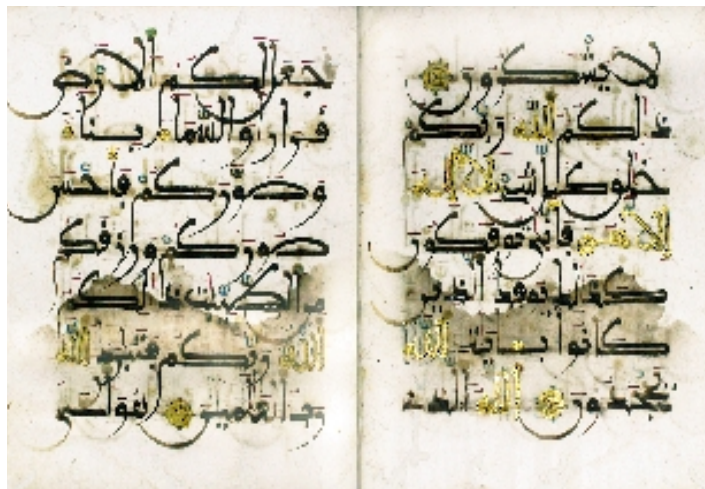 لا يشكرون
ذلكم الله ربكم
خلق كل شىء لا إله
إلا هو فأنى تؤفكون
كذلك يؤفك الذين
كانوا بآيت الله
يجحدون الله الذى
جعل لكم الأرض
قرارا والسماء بناء
وصوركم فأحسن
صوركم ورزقكم
من الطيبت ذلكم
الله ربكم فتبرك الله
رب العلمين هو الحى